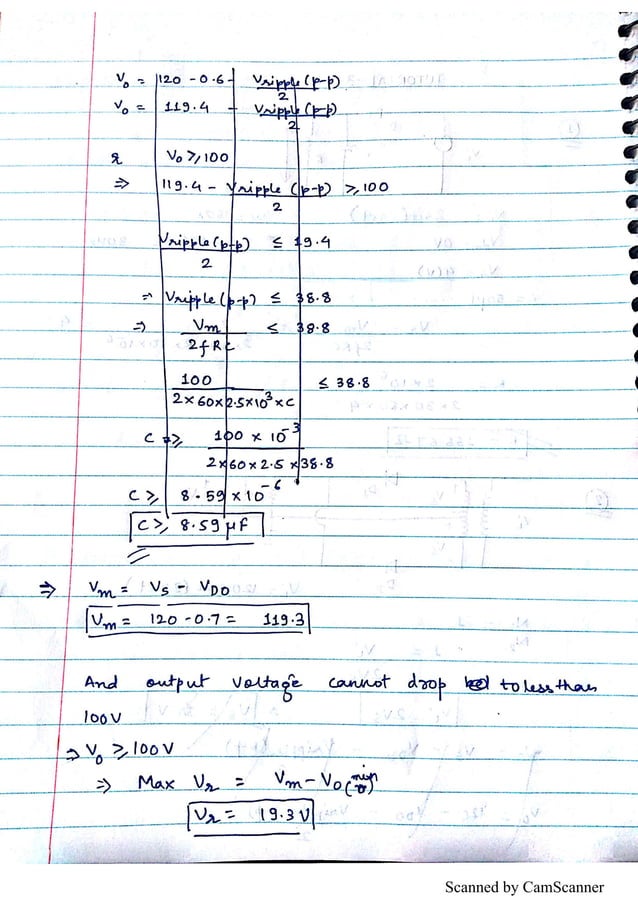 V₀ = 120 - 0.6 - Vripple(p-p)/2
V₀ = 119.4 - Vripple(p-p)/2
V₀ ≥ 100
⇒ 119.4 - Vripple(p-p)/2 ≥ 100
Vripple(p-p)/2 ≤ 19.4
⇒ Vripple(p-p) ≤ 38.8
⇒ Vm/2fRC ≤ 38.8
100/2×60×2.5×10³×C ≤ 38.8
C ≥ 100 × 10⁻³/2×60×2.5×38.8
C ≥ 8.59 × 10⁻⁶
C ≥ 8.59 μF
⇒ Vm = Vs - VD0
Vm = 120 - 0.7 = 119.3
And output voltage cannot drop to less than
100V
⇒ V₀ ≥ 100V
⇒ Max Vr = Vm - V₀(min)
Vr = 19.3 V
Scanned by CamScanner